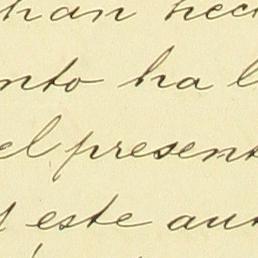 han hec
nto ha l
el present
este aun